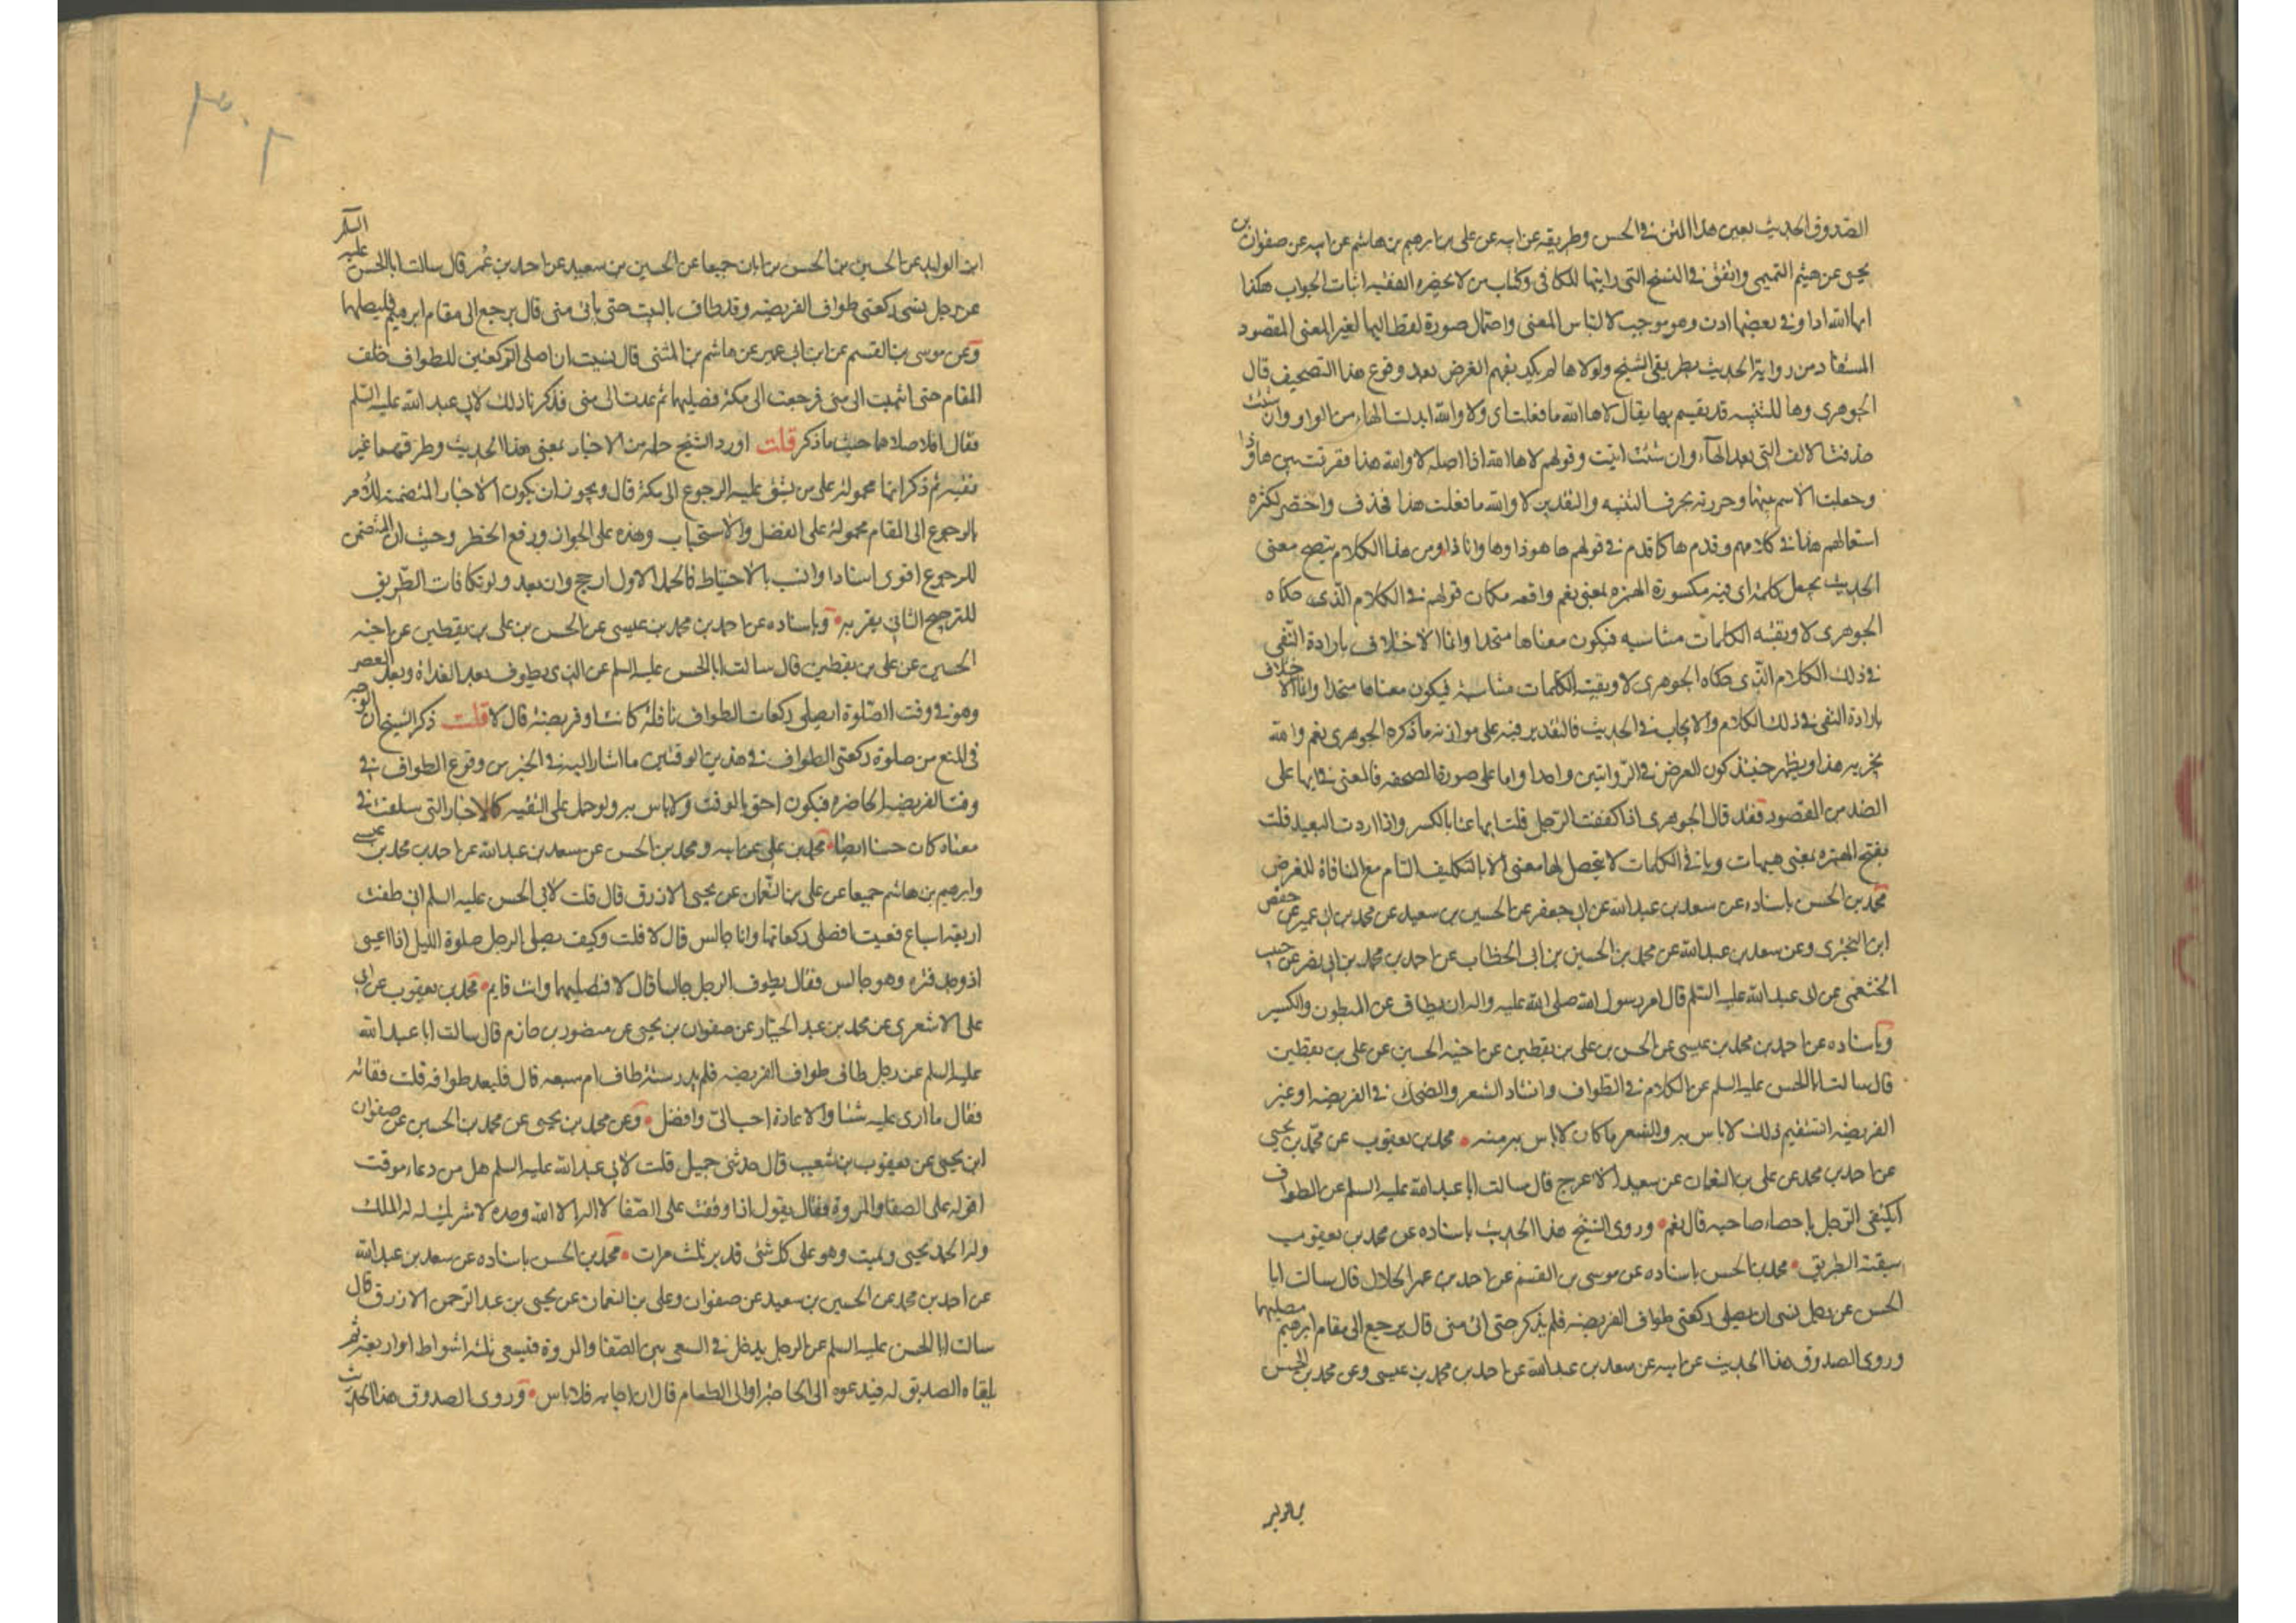 الصدوق الحديث بعين هذا المتن في الحسن وطريقه عن ابيه عن علي بن ابرهيم بن هاشم عن ابيه عن صفوان بن
يحيى عن هيثم التميمي واتفق في النسخ التي رايتها للكافي وكتاب من لا يحضره الفقيه اثبات الجواب هكذا
ايها الله اذا وفي بعضها اذن وهو موجب لالتباس المعنى واحتمال صورة لفظ ايها لغير المعنى المقصود
المستفاد من رواية الحديث بطريقي الشيخ ولولاها لم يكد يفهم الغرض بعد وقوع هذا التصحيف قال
الجوهري وها للتنبيه قد يقسم بها يقال لا ها الله ما فعلت اي ولا والله ابدلت الهاء من الواو وان شئت
حذفت الالف التي بعد الهاء وان شئت اثبت وقولهم لا ها الله اذا اصله لا والله هذا ففرقت بين ها وذا
وجعلت الاسم بينهما وجررته بحرف التنبيه والتقدير لا والله ما فعلت هذا فحذف واختصر لكثرة
استعمالهم هذا في كلامهم وقدم ها كما قدم في قولهم ها هو ذا وها وانا ذا ومن هذا الكلام يتضح معنى
الحديث بجعل كلمة اي فيه مكسورة الهمزة بمعنى نعم واقعه مكان قولهم في الكلام الذي حكاه
الجوهري لا وبقيه الكلمات متناسبه فيكون معناها متحدا وانما الاختلاف بارادة النفي
في ذلك الكلام الذي حكاه الجوهري لا وبقيت الكلمات متناسبة فيكون معناها متحدا وانما الاختلاف
بارادة النفي في ذلك الكلام والايجاب في الحديث فالتقدير فيه على موازنه ما ذكره الجوهري نعم والله
يجزيه هذا ويظهر حينئذ كون الغرض في الروايتين واحدا واما على صورة المصحفه فالمعنى في ايها على
الضد من المقصود فقد قال الجوهري اذا كففت الرجل قلت ايها عنا بالكسر واذا اردت التبعيد قلت
بفتح الهمزه بمعنى هيهات وباقي الكلمات لا يتحصل لها معنى الا بالتكليف التام مع المنافاة للغرض
محمد بن الحسن باسناده عن سعد بن عبد الله عن ابي جعفر عن الحسين بن سعيد عن محمد بن ابي عمير عن حفص
ابن البختري وعن سعد بن عبد الله عن محمد بن الحسين بن ابي الخطاب عن احمد بن محمد بن ابي نصر عن حبيب
الخثعمي عن ابي عبد الله عليه السلم قال امر رسول الله صلى الله عليه واله ان يطاف عن المبطون والكسير
وباسناده عن احمد بن محمد بن عيسى عن الحسن بن علي بن يقطين عن اخيه الحسين عن علي بن يقطين
قال سالت ابا الحسن عليه السلم عن الكلام في الطواف وانشاد الشعر والضحك في الفريضه او غير
الفريضه ايستقيم ذلك لا باس به والشعر ما كان لا باس به منه محمد بن يعقوب عن محمد بن يحيى
عن احمد بن محمد عن علي بن النعمان عن سعيد الاعرج قال سالت ابا عبد الله عليه السلم عن الطواف
ايكتفى الرجل باحصاء صاحبه قال نعم وروى الشيخ هذا الحديث باسناده عن محمد بن يعقوب
ببقية الطريق محمد بن الحسن باسناده عن موسى بن القسم عن احمد بن عمر الحلال قال سالت ابا
الحسن عن رجل نسي ان يصلي ركعتي طواف الفريضه فلم يذكر حتى اتى منى قال يرجع الى مقام ابرهيم فيصليهما
وروى الصدوق هذا الحديث عن ابيه عن سعد بن عبد الله عن احمد بن محمد بن عيسى وعن محمد بن الحسن
ابن الوليد عن الحسين بن الحسن بن ابان جميعا عن الحسين بن سعيد عن احمد بن عمر قال سالت ابا الحسن عليه السلم
عن رجل نسي ركعتي طواف الفريضه وقد طاف بالبيت حتى يأتي منى قال يرجع الى مقام ابرهيم فليصلهما
وعن موسى بن القسم عن ابن ابي عمير عن هاشم بن المثنى قال نسيت ان اصلي الركعتين للطواف خلف
المقام حتى انتهيت الى منى فرجعت الى مكة فصليتهما ثم عدت الى منى فذكرنا ذلك لابي عبد الله عليه السلم
فقال افلا صلاهما حيث ما ذكر قلت اورد الشيخ جمله من الاخبار بمعنى هذا الحديث وطرقهما غير
نقيه ثم ذكر انها محمولة على من يشق عليه الرجوع الى مكة قال ويجوز ان يكون الاخبار المتضمنة للامر
بالرجوع الى المقام محمولة على الفضل والاستحباب وهذه على الجواز ورفع الحظر وحيث ان المتضمن
للرجوع اقوى اسنادا وانسب بالاحتياط فالحمل الاول ارجح وان بعد ولو تكافات الطريق
للترجيح الثاني بقربه وباسناده عن احمد بن محمد بن عيسى عن الحسن بن علي بن يقطين عن اخيه
الحسين عن علي بن يقطين قال سالت ابا الحسن عليه السلم عن الذي يطوف بعد الغداة وبعد العصر
وهو في وقت الصلوة ايصلي ركعات الطواف نافلة كانت او فريضة قال لا قلت ذكر الشيخ ان الوجه
في المنع من صلوة ركعتي الطواف في هذين الوقتين ما اشار اليه في الخبر من وقوع الطواف في
وقت الفريضه الحاضره فيكون احق بالوقت ولا باس به ولو حمل على التقيه كالاخبار التي سلفت في
معناه كان حسنا ايضا محمد بن علي عن ابيه ومحمد بن الحسن عن سعد بن عبد الله عن احمد بن محمد بن عيسى
وابرهيم بن هاشم جميعا عن علي بن النعمان عن يحيى الازرق قال قلت لابي الحسن عليه السلم اني طفت
اربعة اسباع فعييت افصلي ركعاتها وانا جالس قال لا قلت وكيف يصلي الرجل صلوة الليل اذا اعيى
او وجد فترة وهو جالس فقال يطوف الرجل جالسا قال لا فتصليهما وانت قايم محمد بن يعقوب عن ابي
علي الاشعري عن محمد بن عبد الجبار عن صفوان بن يحيى عن منصور بن حازم قال سالت ابا عبد الله
عليه السلم عن رجل طاف طواف الفريضه فلم يدر ستة طاف ام سبعه قال فليعد طوافه قلت ففاته
فقال ما ارى عليه شئا والاعادة احب الي وافضل وعن محمد بن يحيى عن محمد بن الحسين عن صفوان
ابن يحيى عن يعقوب بن شعيب قال حدثني جميل قلت لابي عبد الله عليه السلم هل من دعاء موقت
اقوله على الصفا والمروة فقال يقول اذا وقفت على الصفا لا اله الا الله وحده لا شريك له له الملك
وله الحمد يحيي ويميت وهو على كل شئ قدير ثلث مرات محمد بن الحسن باسناده عن سعد بن عبد الله
عن احمد بن محمد عن الحسين بن سعيد عن صفوان وعلي بن النعمان عن يحيى بن عبد الرحمن الازرق قال
سالت ابا الحسن عليه السلم عن الرجل يدخل في السعي بين الصفا والمروة فيسعى ثلثه اشواط او اربعة ثم
يلقاه الصديق له فيدعوه الى الحاجة او الى الطعام قال ان اجابه فلا باس وروى الصدوق هذا الحديث